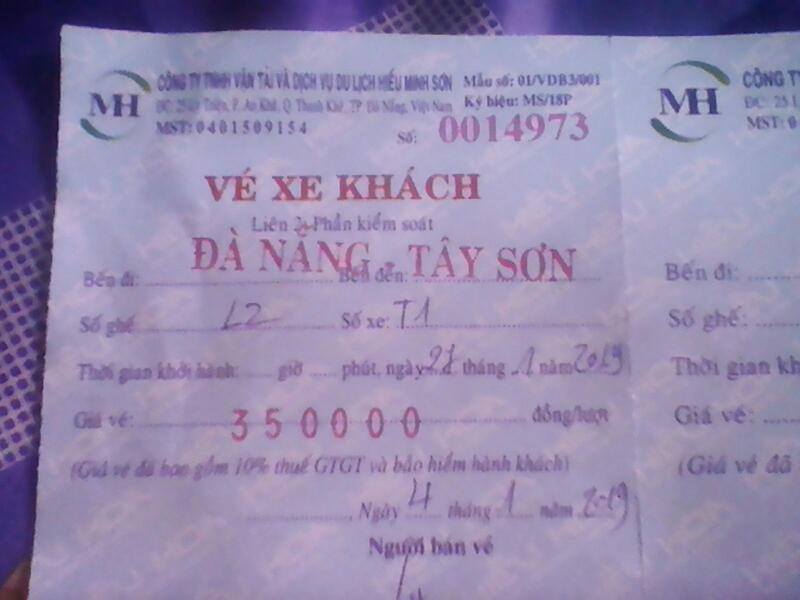 MH
CÔNG TY TNHH VẬN TẢI VÀ DỊCH VỤ DU LỊCH HIẾU MINH SƠN Mẫu số: 01/VDB3/001
P. An Khê, Q. Thanh Khê, TP Đà Nẵng, Việt Nam Ký hiệu: MS/18P
MST: 0401509154 Số: 0014973
VÉ XE KHÁCH
Liên 2: Phần kiểm soát
Bến đi: ĐÀ NẴNG - Bến đến: TÂY SƠN
Số ghế L2 Số xe: T1
Thời gian khởi hành: giờ phút, ngày 27 tháng 1 năm 2019
Giá vé: 350000 đồng/lượt
(Giá vé đã bao gồm 10% thuế GTGT và bảo hiểm hành khách)
Ngày 4 tháng 1 năm 2019
Người bán vé
MH
CÔNG T
ĐC: 25
MST: 0
Bến đi:
Số ghế:
Thời gian kh
Giá vé:
(Giá vé đã